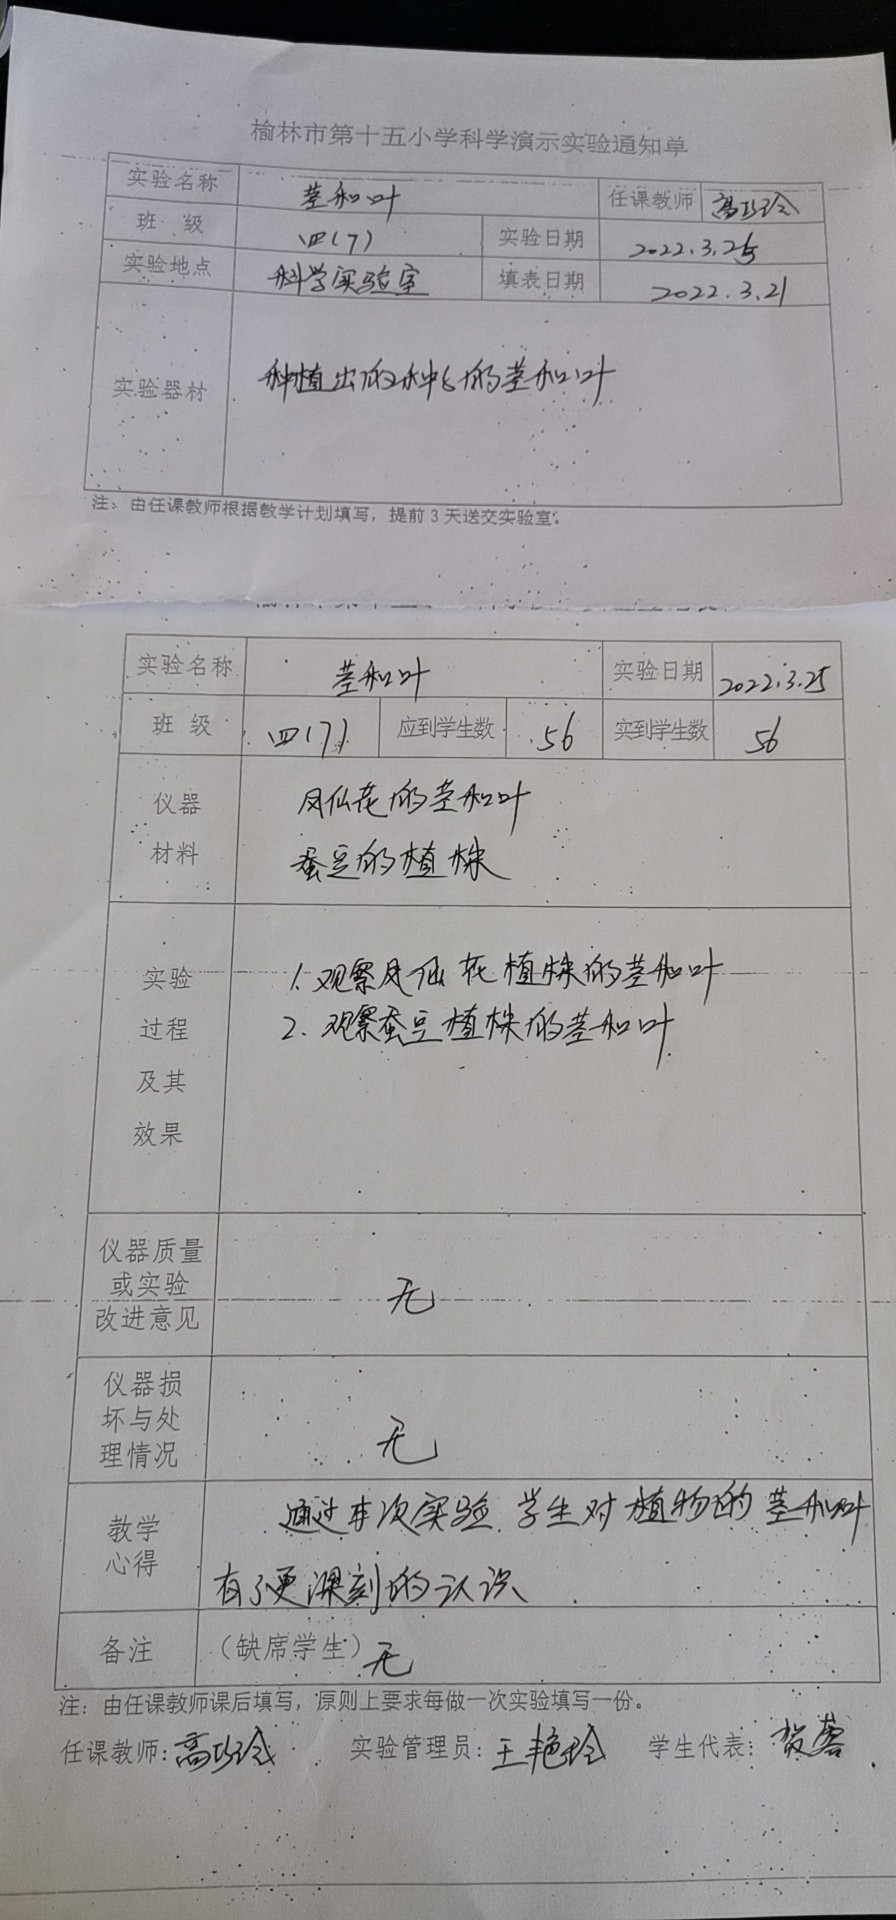 榆林市第十五小学科学演示实验通知单
实验名称 茎和叶 任课教师 高巧玲
班 级 四(7) 实验日期 2022.3.25
实验地点 科学实验室 填表日期 2022.3.21
实验器材 种植出的种子的茎和叶
注：由任课教师根据教学计划填写，提前3天送交实验室。
实验名称 茎和叶 实验日期 2022.3.25
班 级 四(7) 应到学生数 56 实到学生数 56
仪器
材料
凤仙花的茎和叶
蚕豆的植株
实验
过程
及其
效果
1.观察凤仙花植株的茎和叶
2.观察蚕豆植株的茎和叶
仪器质量
或实验
改进意见
无
仪器损
坏与处
理情况
无
教学
心得
通过本次实验,学生对植物的茎和叶
有了更深刻的认识
备注 （缺席学生）无
注：由任课教师课后填写，原则上要求每做一次实验填写一份。
任课教师：高巧玲 实验管理员：王艳玲 学生代表：贺